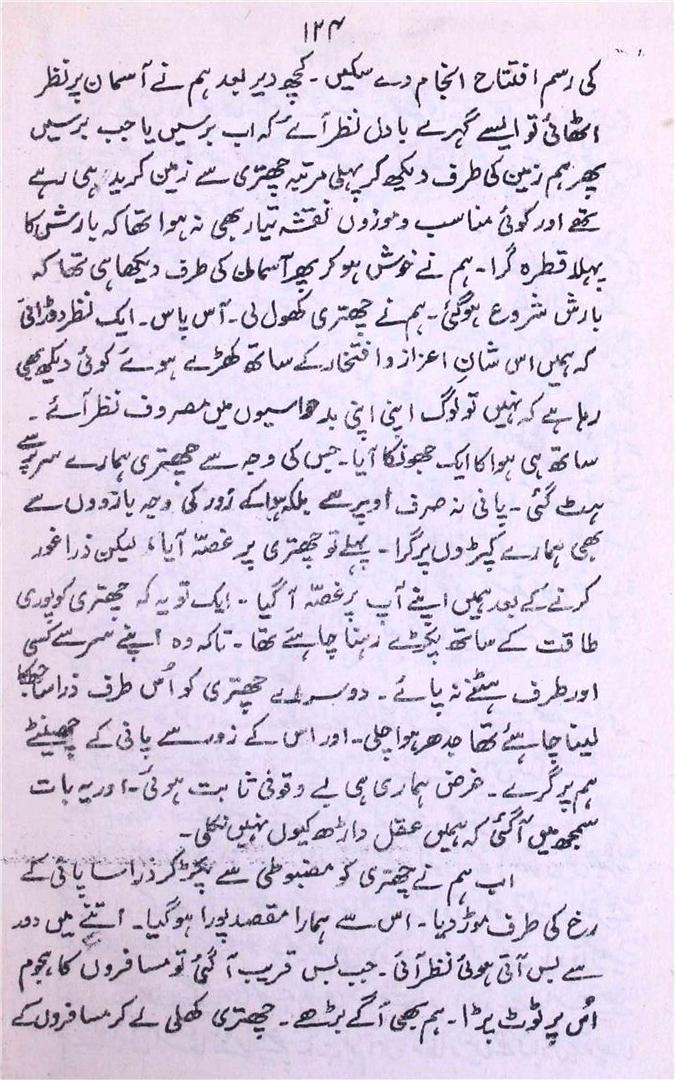 ۱۲۴
کی رسم افتتاح انجام دے سکیں۔ کچھ دیر بعد ہم نے آسمان پر نظر
اٹھائی تو ایسے گہرے بادل نظر آئے کہ اب برسیں یا جب برسیں
پھر ہم زمین کی طرف دیکھ کر پہلی مرتبہ چھتری سے زمین کرید ہی رہے
تھے اور کوئی مناسب و موزوں نقشہ تیار بھی نہ ہوا تھا کہ بارش کا
پہلا قطرہ گرا۔ ہم نے خوش ہو کر پھر آسمان کی طرف دیکھا ہی تھا کہ
بارش شروع ہو گئی۔ ہم نے چھتری کھول لی۔ آس پاس۔ ایک نظر دوڑائی
کہ ہمیں اس شانِ اعزاز و افتخار کے ساتھ کھڑے ہوئے کوئی دیکھ بھی
رہا ہے کہ نہیں تو لوگ اپنی اپنی بدحواسیوں میں مصروف نظر آئے۔
ساتھ ہی ہوا کا ایک جھونکا آیا۔ جس کی وجہ سے چھتری ہمارے سر پر سے
ہٹ گئی۔ پانی نہ صرف اوپر سے بلکہ ہوا کے زور کی وجہ بازوؤں سے
بھی ہمارے کپڑوں پر گرا۔ پہلے تو چھتری پر غصّہ آیا، لیکن ذرا غور
کرنے کے بعد ہمیں اپنے آپ پر غصّہ آ گیا۔ ایک تو یہ کہ چھتری کو پوری
طاقت کے ساتھ پکڑے رہنا چاہئے تھا۔ تاکہ وہ اپنے سر سے کسی
اور طرف ہٹنے نہ پائے۔ دوسرے چھتری کو اُس طرف ذرا سا جھکا
لینا چاہئے تھا جدھر ہوا چلی۔ اور اس کے زور سے پانی کے چھینٹے
ہم پر گرے۔ غرض ہماری ہی بے وقوفی ثابت ہوئی۔ اور یہ بات
سمجھ میں آ گئی کہ ہمیں عقل داڑھ کیوں نہیں نکلی۔
اب ہم نے چھتری کو مضبوطی سے پکڑ کر ذرا سا پانی کے
رخ کی طرف موڑ دیا۔ اس سے ہمارا مقصد پورا ہو گیا۔ اتنے میں دور
سے بس آتی ہوئی نظر آئی۔ جب بس قریب آ گئی تو مسافروں کا ہجوم
اُس پر ٹوٹ پڑا۔ ہم بھی آگے بڑھے۔ چھتری کھلی لے کر مسافروں کے